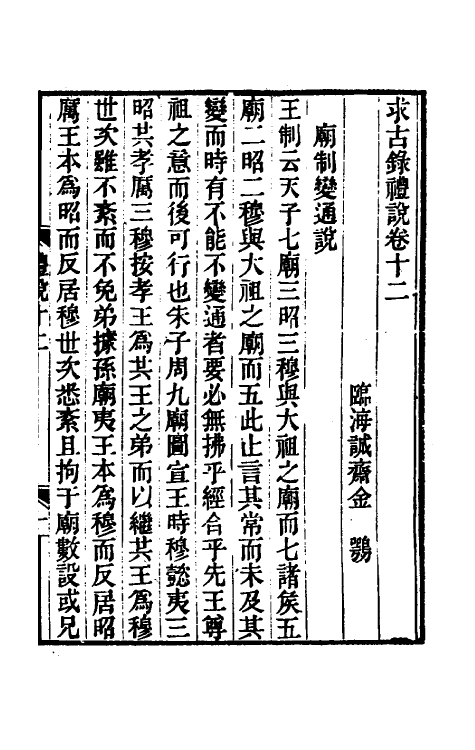 求古錄禮說卷十二
臨海誠齋金 鶚
廟制變通說
王制云天子七廟三昭三穆與大祖之廟而七諸矦五
廟二昭二穆與大祖之廟而五此止言其常而未及其
變而時有不能不變通者要必無拂乎經合乎先王尊
祖之意而後可行也朱子周九廟圖宣王時穆懿夷三
昭共孝厲三穆按孝王爲共王之弟而以繼共王爲穆
世次雖不紊而不免弟據孫廟夷王本爲穆而反居昭
厲王本爲昭而反居穆世次悉紊且拘于廟數設或兄
禮說十二
一